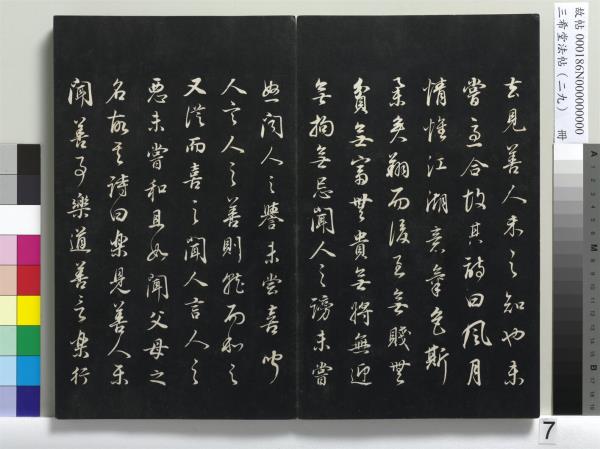 故帖 000186N000000000
三希堂法帖（二九） 冊
去見善人未之知也未
嘗急合故其詩曰風月
情懷江湖氣色斯
舉矣翔而後至無賤無
貧無富無貴無將無迎
無拘無忌聞人之謗未嘗
怒聞人之譽未嘗喜聞
人言人之善則就而和之
又從而喜之聞人言人之
惡未嘗和且如聞父母之
名故其詩曰樂見善人樂
聞善事樂道善言樂行
7